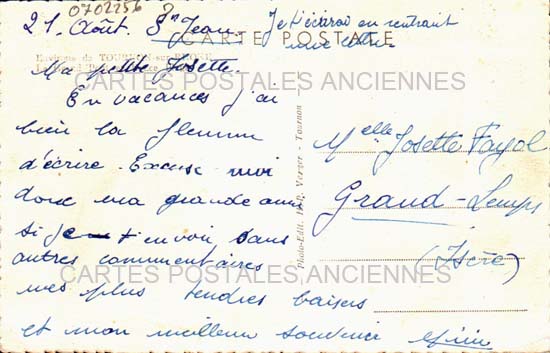 0702256
21. Août. St Jean.
Je t'écrirai en rentrant
une lettre.
CARTE POSTALE
Environs de TOURNON-sur-RHONE
Ma petite Josette.
CARTES POSTALES ANCIENNES
En vacances j'ai
bien la flemme
d'écrire. Excuse moi
donc ma grande amie
si je t'envoie sans
autres commentaires
CARTES POSTALES ANCIENNES
mes plus tendres baisers
et mon meilleur souvenir
Photo-Edit. Verger - Tournon
Melle Josette Fayol
Grand-Lemps
(Isère)